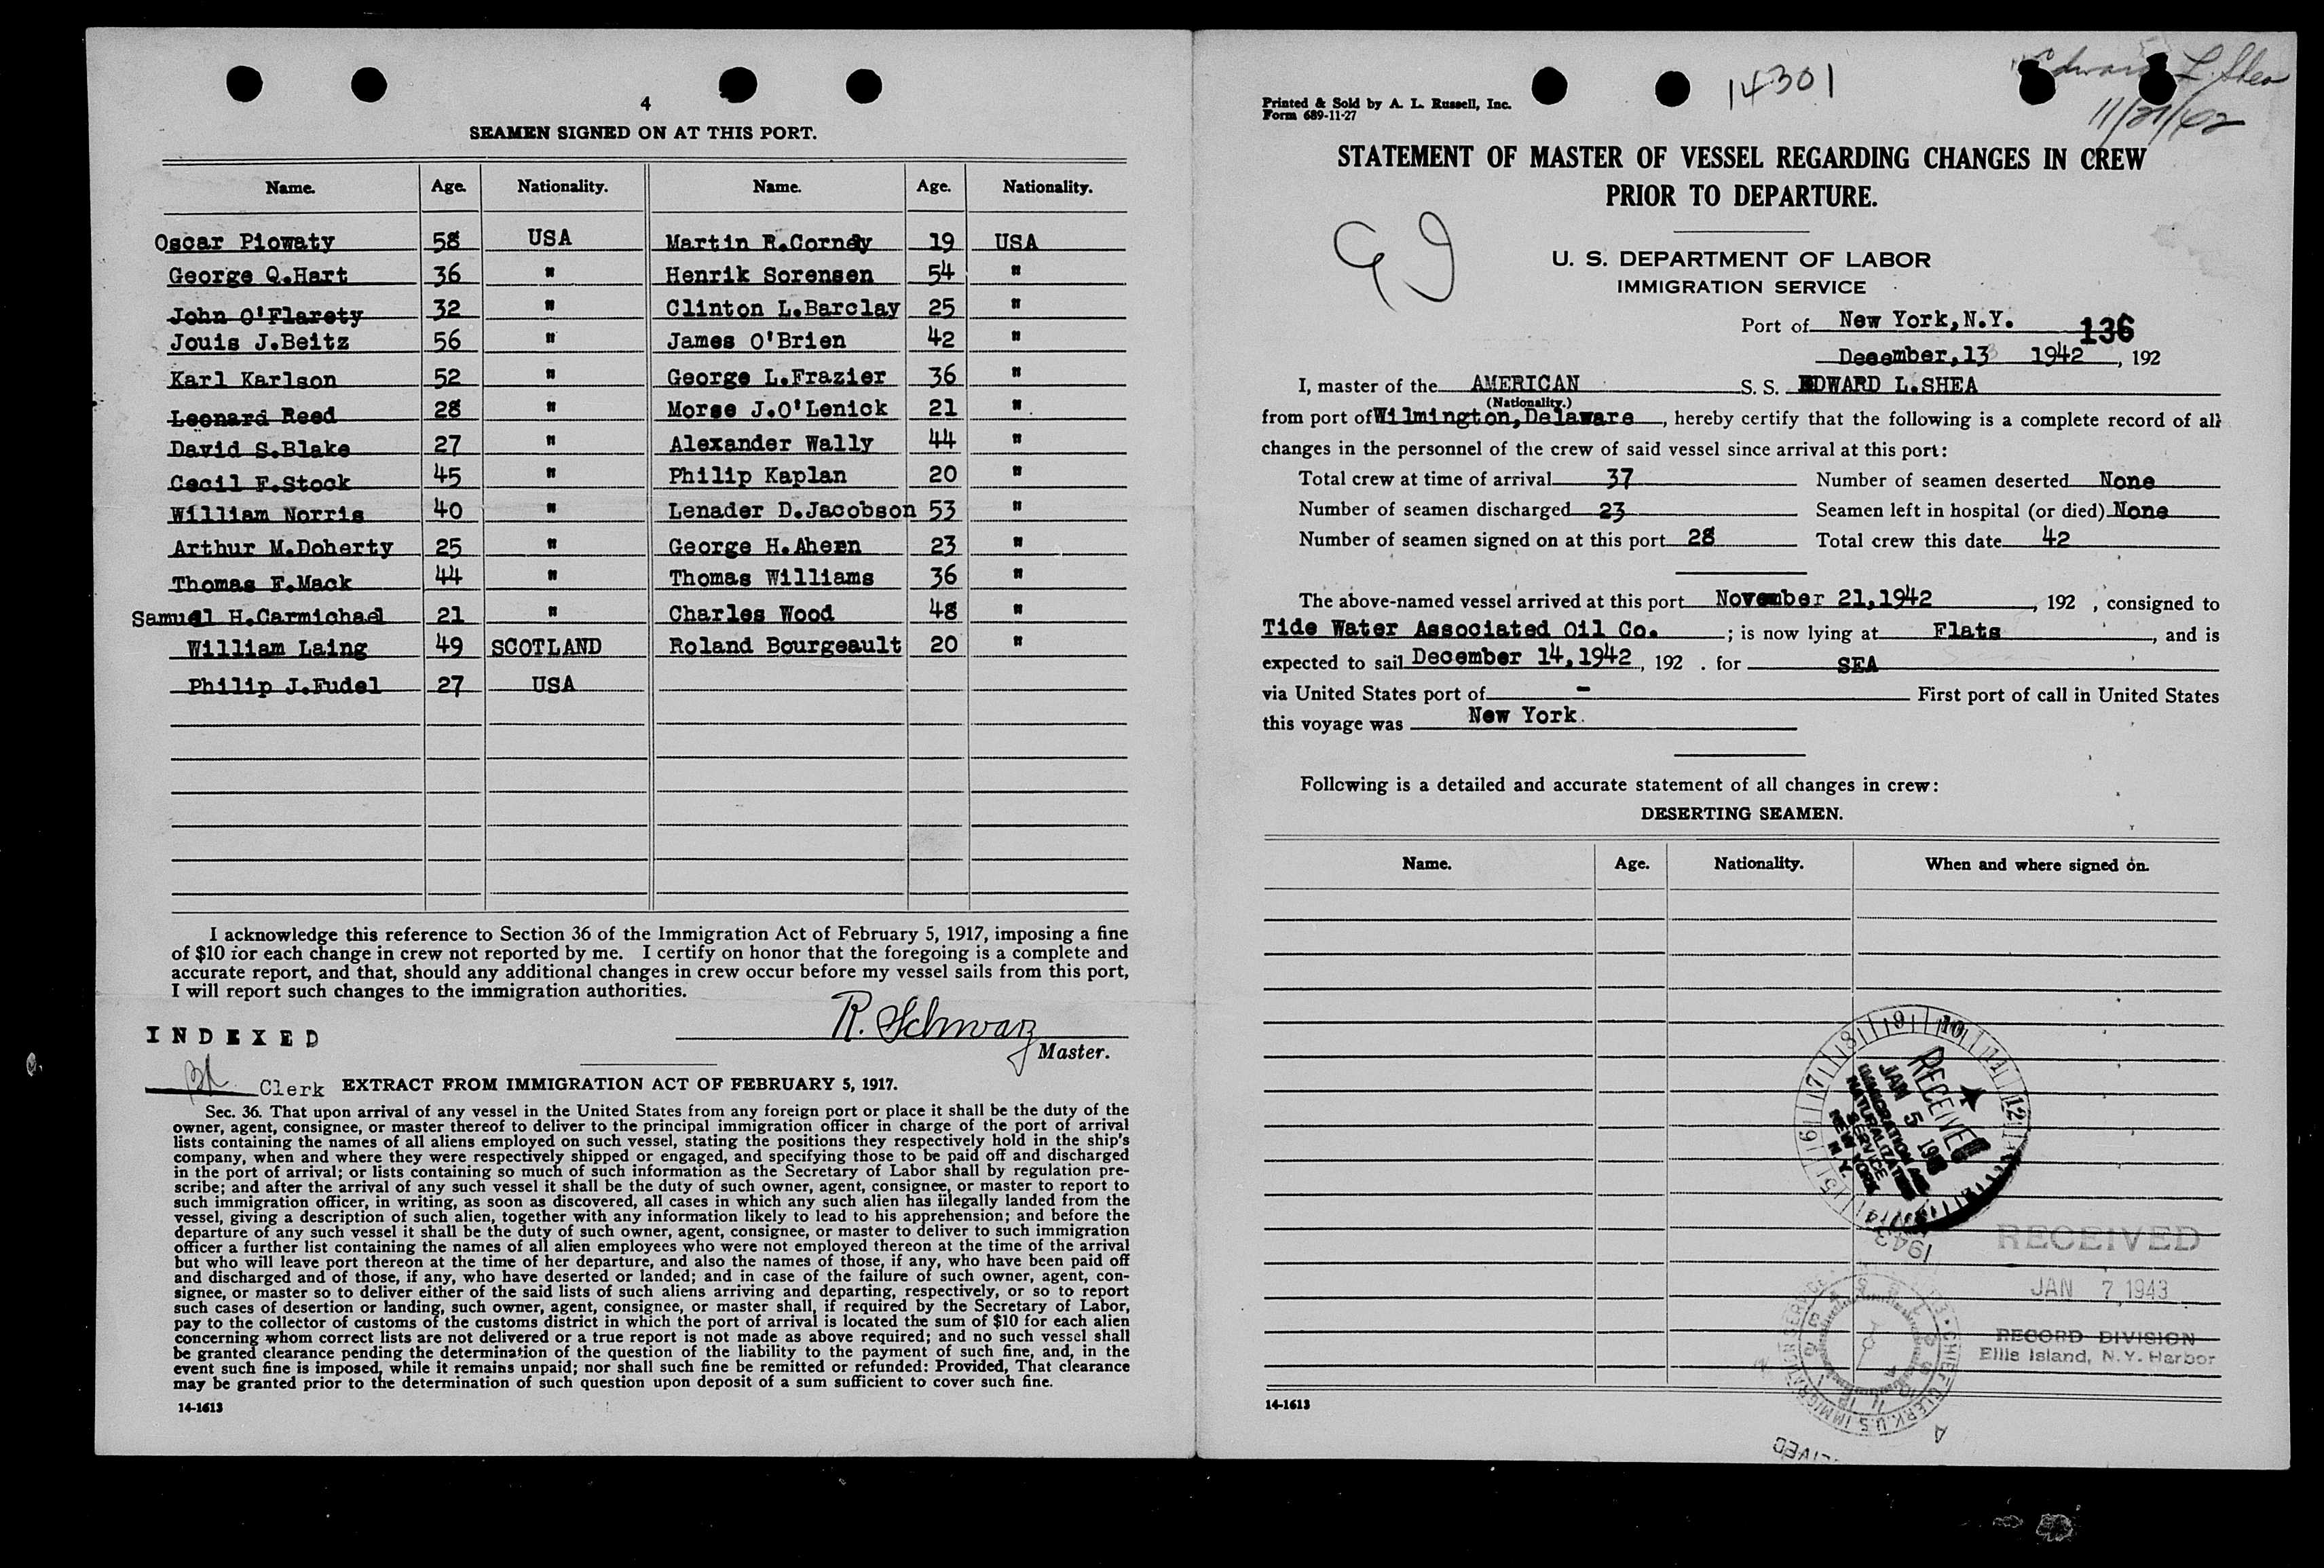 4
SEAMEN SIGNED ON AT THIS PORT.
Name. Age. Nationality. Name. Age. Nationality.
Oscar Piowaty 58 USA Martin R.Corney 19 USA
George Q.Hart 36 " Henrik Sorensen 54 "
John O'Flarety 32 " Clinton L.Barclay 25 "
Jouis J.Beitz 56 " James O'Brien 42 "
Karl Karlson 52 " George L.Frazier 36 "
Leonard Reed 28 " Morse J.O'Lenick 21 "
David S.Blake 27 " Alexander Wally 44 "
Cecil F.Stock 45 " Philip Kaplan 20 "
William Norris 40 " Lenader D.Jacobson 53 "
Arthur M.Doherty 25 " George H.Ahern 23 "
Thomas F.Mack 44 " Thomas Williams 36 "
Samuel H.Carmichael 21 " Charles Wood 48 "
William Laing 49 SCOTLAND Roland Bourgeault 20 "
Philip J.Fudel 27 USA
I acknowledge this reference to Section 36 of the Immigration Act of February 5, 1917, imposing a fine
of $10 for each change in crew not reported by me. I certify on honor that the foregoing is a complete and
accurate report, and that, should any additional changes in crew occur before my vessel sails from this port,
I will report such changes to the immigration authorities.
R. Schwarz
Master.
INDEXED
Clerk
EXTRACT FROM IMMIGRATION ACT OF FEBRUARY 5, 1917.
Sec. 36. That upon arrival of any vessel in the United States from any foreign port or place it shall be the duty of the
owner, agent, consignee, or master thereof to deliver to the principal immigration officer in charge of the port of arrival
lists containing the names of all aliens employed on such vessel, stating the positions they respectively hold in the ship's
company, when and where they were respectively shipped or engaged, and specifying those to be paid off and discharged
in the port of arrival; or lists containing so much of such information as the Secretary of Labor shall by regulation pre-
scribe; and after the arrival of any such vessel it shall be the duty of such owner, agent, consignee, or master to report to
such immigration officer, in writing, as soon as discovered, all cases in which any such alien has illegally landed from the
vessel, giving a description of such alien, together with any information likely to lead to his apprehension; and before the
departure of any such vessel it shall be the duty of such owner, agent, consignee, or master to deliver to such immigration
officer a further list containing the names of all alien employees who were not employed thereon at the time of the arrival
but who will leave port thereon at the time of her departure, and also the names of those, if any, who have been paid off
and discharged and of those, if any, who have deserted or landed; and in case of the failure of such owner, agent, con-
signee, or master so to deliver either of the said lists of such aliens arriving and departing, respectively, or so to report
such cases of desertion or landing, such owner, agent, consignee, or master shall, if required by the Secretary of Labor,
pay to the collector of customs of the customs district in which the port of arrival is located the sum of $10 for each alien
concerning whom correct lists are not delivered or a true report is not made as above required; and no such vessel shall
be granted clearance pending the determination of the question of the liability to the payment of such fine, and, in the
event such fine is imposed, while it remains unpaid; nor shall such fine be remitted or refunded: Provided, That clearance
may be granted prior to the determination of such question upon deposit of a sum sufficient to cover such fine.
14-1613
Edward L. Shea
11/21/42
14301
Printed & Sold by A. L. Russell, Inc.
Form 689-11-27
STATEMENT OF MASTER OF VESSEL REGARDING CHANGES IN CREW
PRIOR TO DEPARTURE.
U. S. DEPARTMENT OF LABOR
IMMIGRATION SERVICE
Port of New York, N.Y. 136
Deeember, 13 1942, 192
I, master of the AMERICAN S. S. EDWARD L.SHEA
(Nationality.)
from port of Wilmington, Delaware, hereby certify that the following is a complete record of all
changes in the personnel of the crew of said vessel since arrival at this port:
Total crew at time of arrival 37 Number of seamen deserted None
Number of seamen discharged 23 Seamen left in hospital (or died) None
Number of seamen signed on at this port 28 Total crew this date 42
The above-named vessel arrived at this port November 21,1942, 192 , consigned to
Tide Water Associated Oil Co. ; is now lying at Flats, and is
expected to sail December 14,1942, 192 . for SEA
via United States port of - First port of call in United States
this voyage was New York.
Following is a detailed and accurate statement of all changes in crew:
DESERTING SEAMEN.
Name. Age. Nationality. When and where signed on.
RECEIVED
JAN 5
IMMIGRATION
NATURALIZATION
SERVICE
NEW YORK
N. Y.
1943
RECEIVED
JAN 7 1943
RECORD DIVISION
Ellis Island, N.Y. Harbor
14-1613